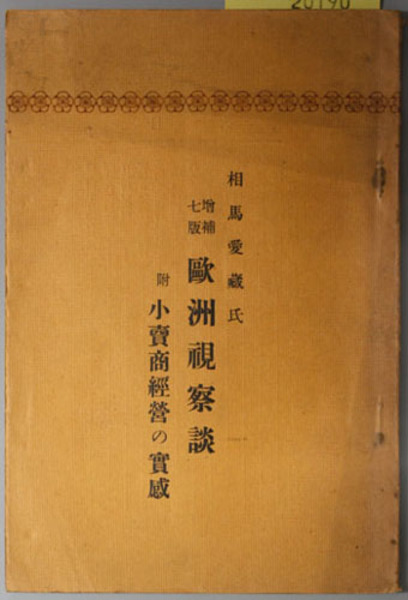 相馬愛藏氏
增補
七版
歐洲視察談
附
小賣商經營の實感